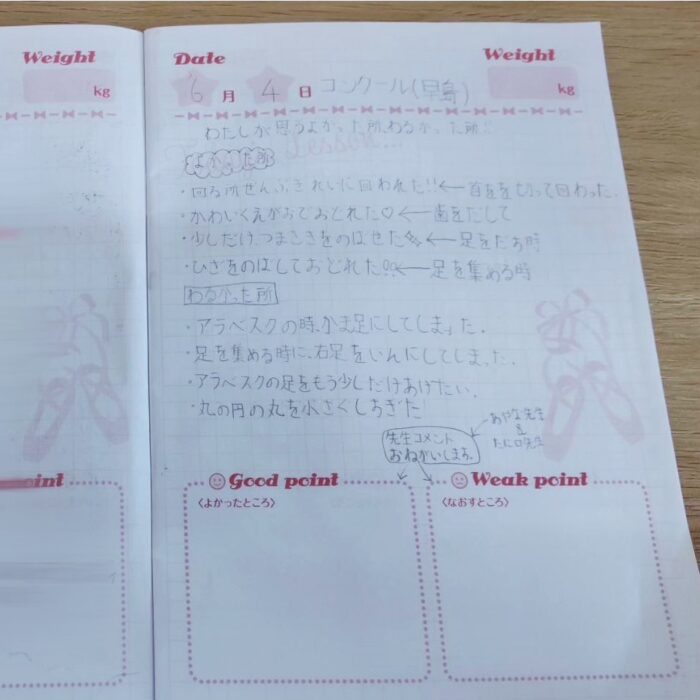 Weight
kg
int
Date
Weight
6月4日 コンクール(早島)
kg
Lesson...
わたしが思うよかった所、わるかった所!!
よかった所
・回る所ぜんぶきれいに回われた!!←首をもって回わった.
・かわいくえがおでおどれた♡←歯をだして
・少しだけつまさきをのばせた←足をだす時
・ひざをのばしておどれた!!←足を集める時
わるかった所
・アラベスクの時、かま足にしてしまった.
・足を集める時に、右足をいんにしてしまった.
・アラベスクの足をもう少しだけあげたい.
・丸の円の丸を小さくしすぎた!
先生コメント
おねがいします。
あやな先生
&
たに口先生
Good point
〈よかったところ〉
Weak point
〈なおすところ〉